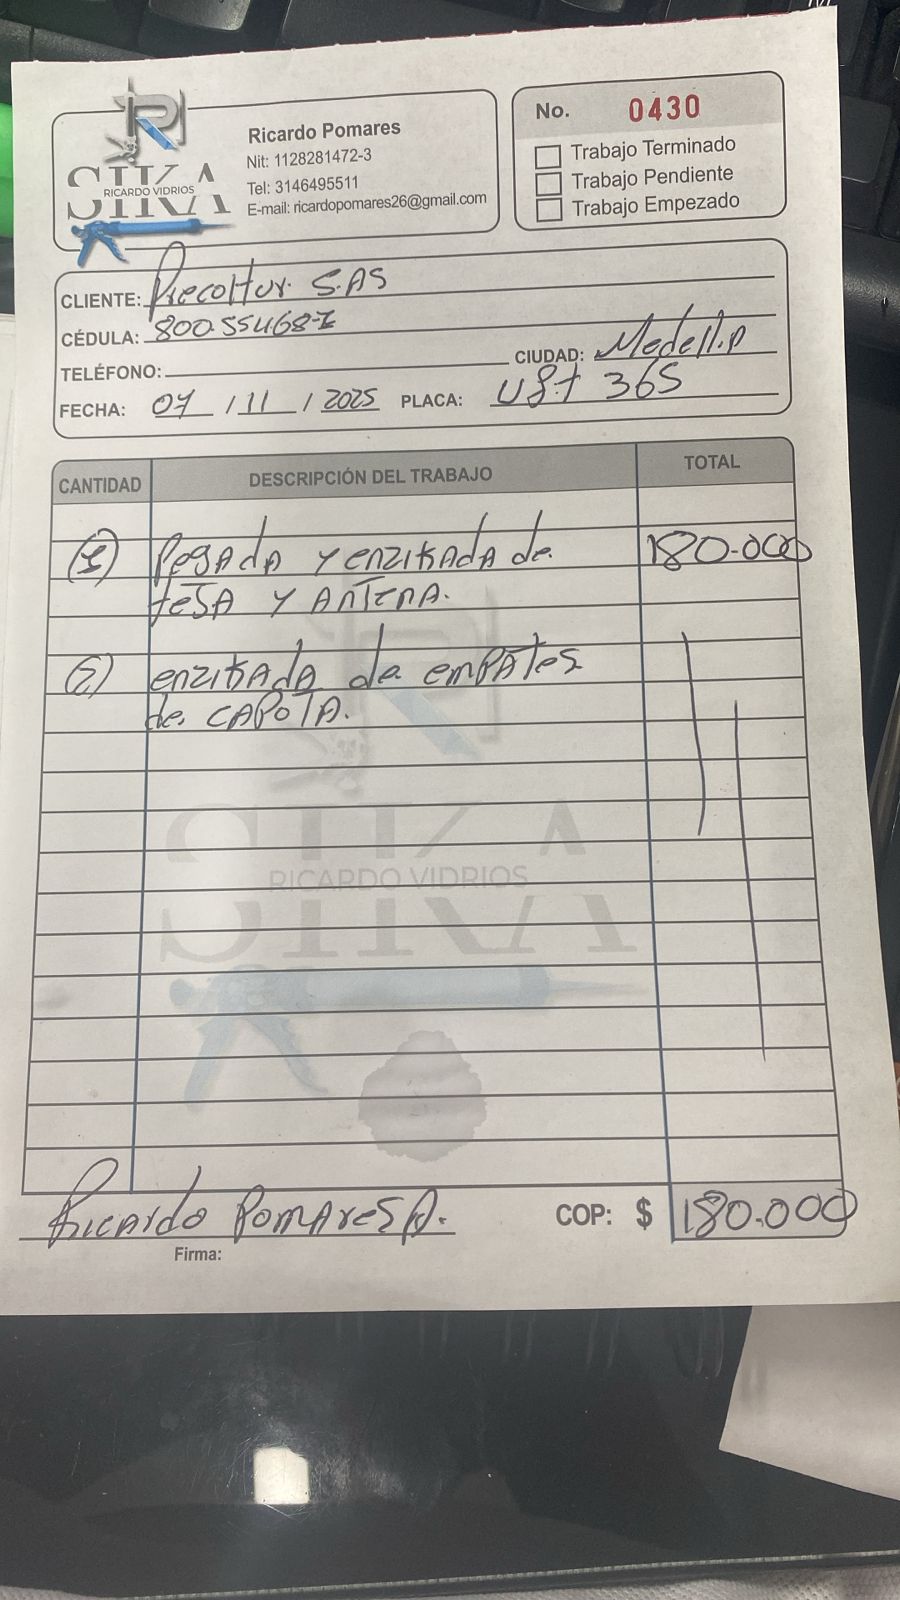 SIKA
RICARDO VIDRIOS
Ricardo Pomares
Nit: 1128281472-3
Tel: 3146495511
E-mail: ricardopomares26@gmail.com
No. 0430
Trabajo Terminado
Trabajo Pendiente
Trabajo Empezado
CLIENTE: Precoltur S.AS
CÉDULA:
TELÉFONO:
CIUDAD: Medellin
FECHA: 07 / 11 / 2025 PLACA: 365
CANTIDAD DESCRIPCIÓN DEL TRABAJO TOTAL
(1) Pegada y enzikada de 180.000
tesa y antena.
(2) enzikada de empates
de capota.
SIKA
RICARDO VIDRIOS
Ricardo Pomares A.
Firma:
COP: $ 180.000